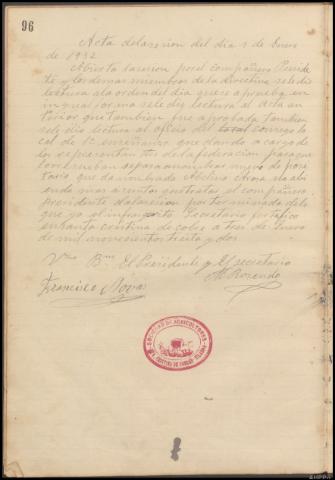 96
Acta de la sesion del dia 1 de Enero
de 1932
Abierta la sesion por el compañero Preside
te y los demas miembros de la directiva se le dio
lectura a la orden del dia que se aprueba en
in gual forma se le dio lectura al acta an
terior que tambien fue aprobada tambien
se le dio lectura al oficio del
cal de 1ª enseñanza quedando a cargo de
los representantes de la federacion para que
tario que da nombrado Abelino no abi
endo mas asuntos que tratar el compañero
presidente da la sesion por terminada de lo
que yo el infrascrito Secretario certifico
en Santa Cristina de Cobres a tres de Enero
de mil novecientos treinta y dos
Vto Bno El Presidente y El secretario
Francisco Novas M. Rosendo
SOCIEDAD DE AGRICULTORES